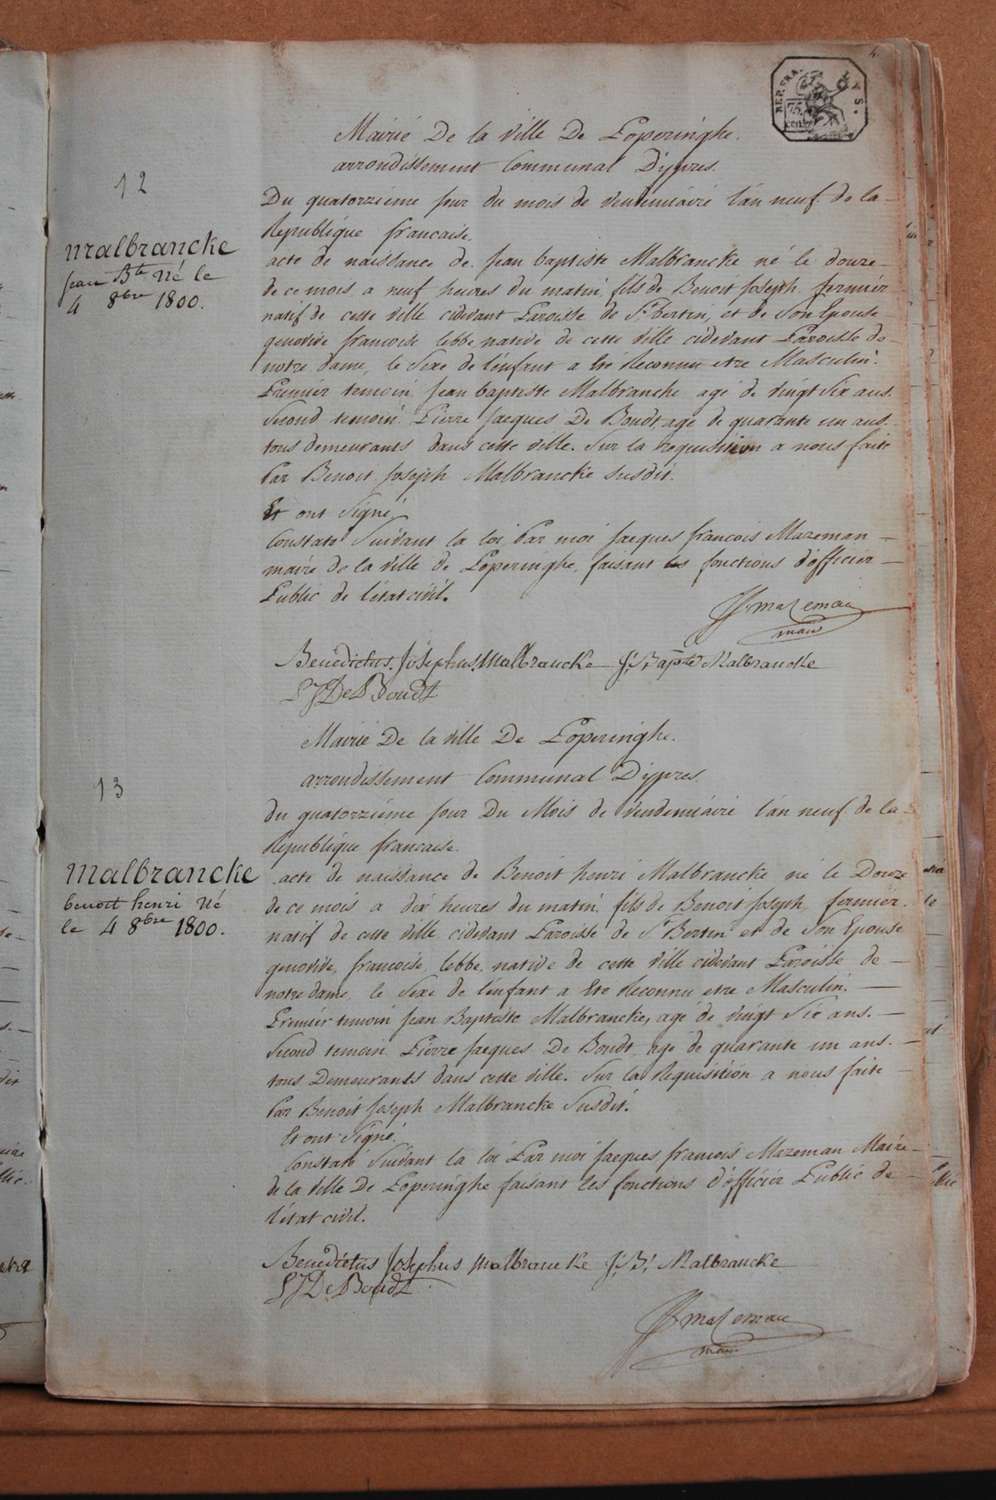 4.
REP. FRA.
Mairie De la ville De Poperinghe.
arrondissement Communal D'ypres.
12
Du quatorzième jour du mois de vendémiaire l'an neuf de la
République francaise.
Malbrancke
jean Bte Né le
4 8bre 1800.
acte de naissance de jean baptiste Malbrancke né le douze
de ce mois a neuf heures du matin, fils de Benoit Joseph, fermier
natif de cette ville cidevant Paroisse de St bertin, et de Son Epouse
genovive francoise lebbe native de cette ville cidevant Paroisse de
notre dame, le Sexe de l'enfant a été Reconnu etre Masculin.
Premier temoin, jean baptiste Malbrancke agé de vingt Six ans.
Second temoin Pierre jacques De Boudt agé de quarante un ans.
tous demeurants dans cette ville. Sur la requisition a nous faite
Par Benoit Joseph Malbrancke susdit.
Et ont Signé
Constaté Suivant la loi Par moi jacques francois Mazeman
maire de la ville de Poperinghe, faisant les fonctions d'officier
Public de l'état civil.
JJ mazeman
maire
Benedictus Josephus Malbrancke J: Bapte Malbrancke
P J De Boudt
Mairie De la ville De Poperinghe.
arrondissement Communal D'ypres.
13
du quatorzième jour Du Mois de vendemiaire l'an neuf de la
République francaise.
Malbrancke
benoit henri Né
le 4 8bre 1800.
acte de naissance de Benoit henri Malbrancke né le Douze
de ce mois a dix heures du matin, fils de Benoit Joseph, fermier
natif de cette ville cidevant Paroisse de St Bertin et de Son Epouse
genovive, francoise, lebbe, native de cette ville cidevant Paroisse de
notre dame, le Sexe de l'enfant a Eté Reconnu etre Masculin.
Premier temoin Jean Baptiste Malbrancke, agé de vingt Six ans.
Second temoin Pierre Jacques De Boudt, agé de quarante un ans.
tous Demeurants dans cette ville. Sur la Réquisition a nous faite
Par Benoit Joseph Malbrancke Susdit.
Et ont Signé
Constaté Suivant la loi Par moi jacques francois Mazeman Maire
de la ville De Poperinghe faisant les fonctions d'officier Public de
l'état civil.
Benedictus Josephus Malbrancke J: B: Malbrancke
P J De Boudt
JJ mazeman
maire